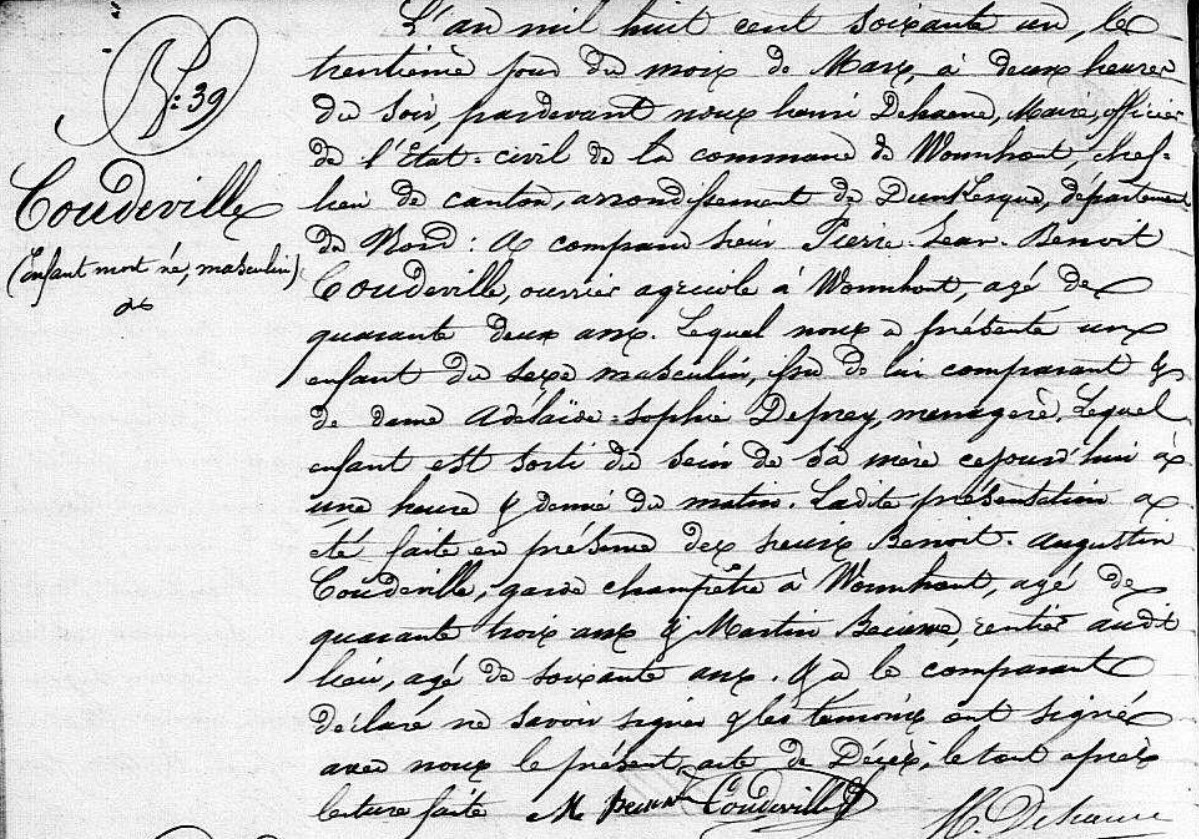 N.° 39
Coudeville
(Enfant mort né, masculin)
L'an mil huit cent soixante un, le
trentième jour du mois de Mars, à deux heures
du soir, pardevant nous henri Dehaene, Maire, officier
de l'Etat-civil de la commune de Wormhout, chef-
lieu de canton, arrondissement de Dunkerque, département
du Nord : A comparu sieur Pierre-Jean-Benoit
Coudeville, ouvrier agricole à Wormhout, agé de
quarante deux ans. Lequel nous a présenté un
enfant du sexe masculin, issu de lui comparant &
de dame Adélaïde-Sophie Deprey, menagerè. Lequel
enfant est sorti du sein de sa mère cejourd'hui à
une heure & demie du matin. Ladite présentation a
été faite en présence des sieurs Benoit-Augustin
Coudeville, garde champêtre à Wormhout, agé de
quarante trois ans & Martin rentier audit
lieu, agé de soixante ans. & a le comparant
déclaré ne savoir signer & les témoins ont signé
avec nous le présent acte de Décès, le tout après
lecture faite M Coudeville
H. Dehaene